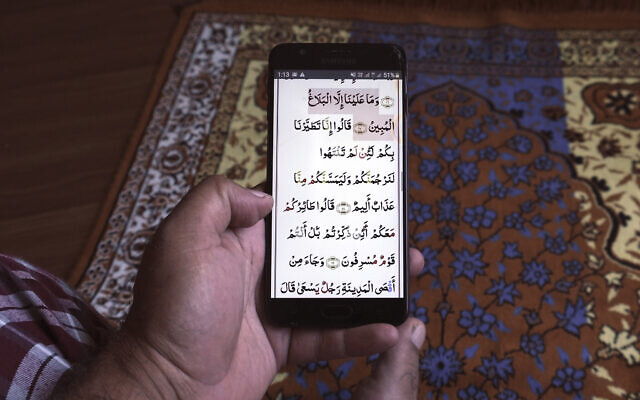 SAMSUNG
1:13 51%
وَمَا عَلَيْنَا إِلَّا الْبَلَاغُ
الْمُبِينُ قَالُوا إِنَّا تَطَيَّرْنَا
بِكُمْ لَئِنْ لَمْ تَنْتَهُوا
لَنَرْجُمَنَّكُمْ وَلَيَمَسَّنَّكُمْ مِنَّا
عَذَابٌ أَلِيمٌ قَالُوا طَائِرُكُمْ
مَعَكُمْ أَئِنْ ذُكِّرْتُمْ بَلْ أَنْتُمْ
قَوْمٌ مُسْرِفُونَ وَجَاءَ مِنْ
أَقْصَى الْمَدِينَةِ رَجُلٌ يَسْعَىٰ قَالَ